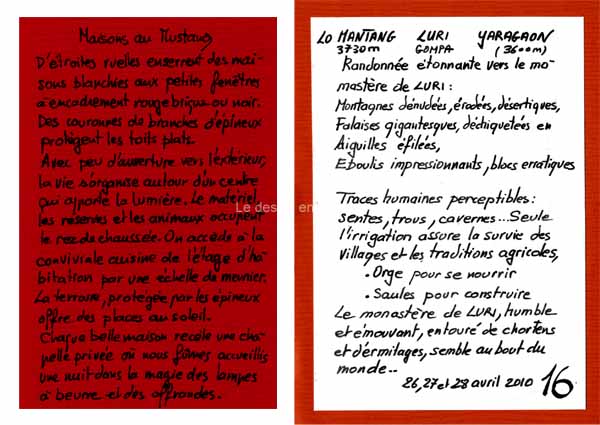 Maisons au Mustang
D'étroites ruelles enserrent des mai-
sons blanchies aux petites fenêtres
à encadrement rouge brique ou noir.
Des couronnes de branches d'épineux
protègent les toits plats.
Avec peu d'ouverture vers l'extérieur,
la vie s'organise autour d'un centre
qui apporte la lumière. Le matériel,
les réserves et les animaux occupent
le rez de chaussée. On accède à la
conviviale cuisine de l'étage d'ha-
bitation par une échelle de meunier.
La terrasse, protégée par les épineux
offre des places au soleil.
Chaque belle maison recèle une cha-
pelle privée où nous fûmes accueillis
une nuit dans la magie des lampes
à beurre et des offrandes.
Le des en
LO MANTANG LURI YARAGAON
3730m GOMPA (3600m)
Randonnée étonnante vers le mo-
nastère de LURI:
Montagnes dénudées, érodées, désertiques,
Falaises gigantesques, déchiquetées en
Aiguilles éfilées,
Eboulis impressionnants, blocs erratiques
Traces humaines perceptibles:
sentes, trous, cavernes... Seule
l'irrigation assure la survie des
villages et les traditions agricoles,
• Orge pour se nourrir
• Saules pour construire
Le monastère de LURI, humble
et émouvant, entouré de chortens
et d'érmitages, semble au bout du
monde...
26, 27 et 28 avril 2010 16